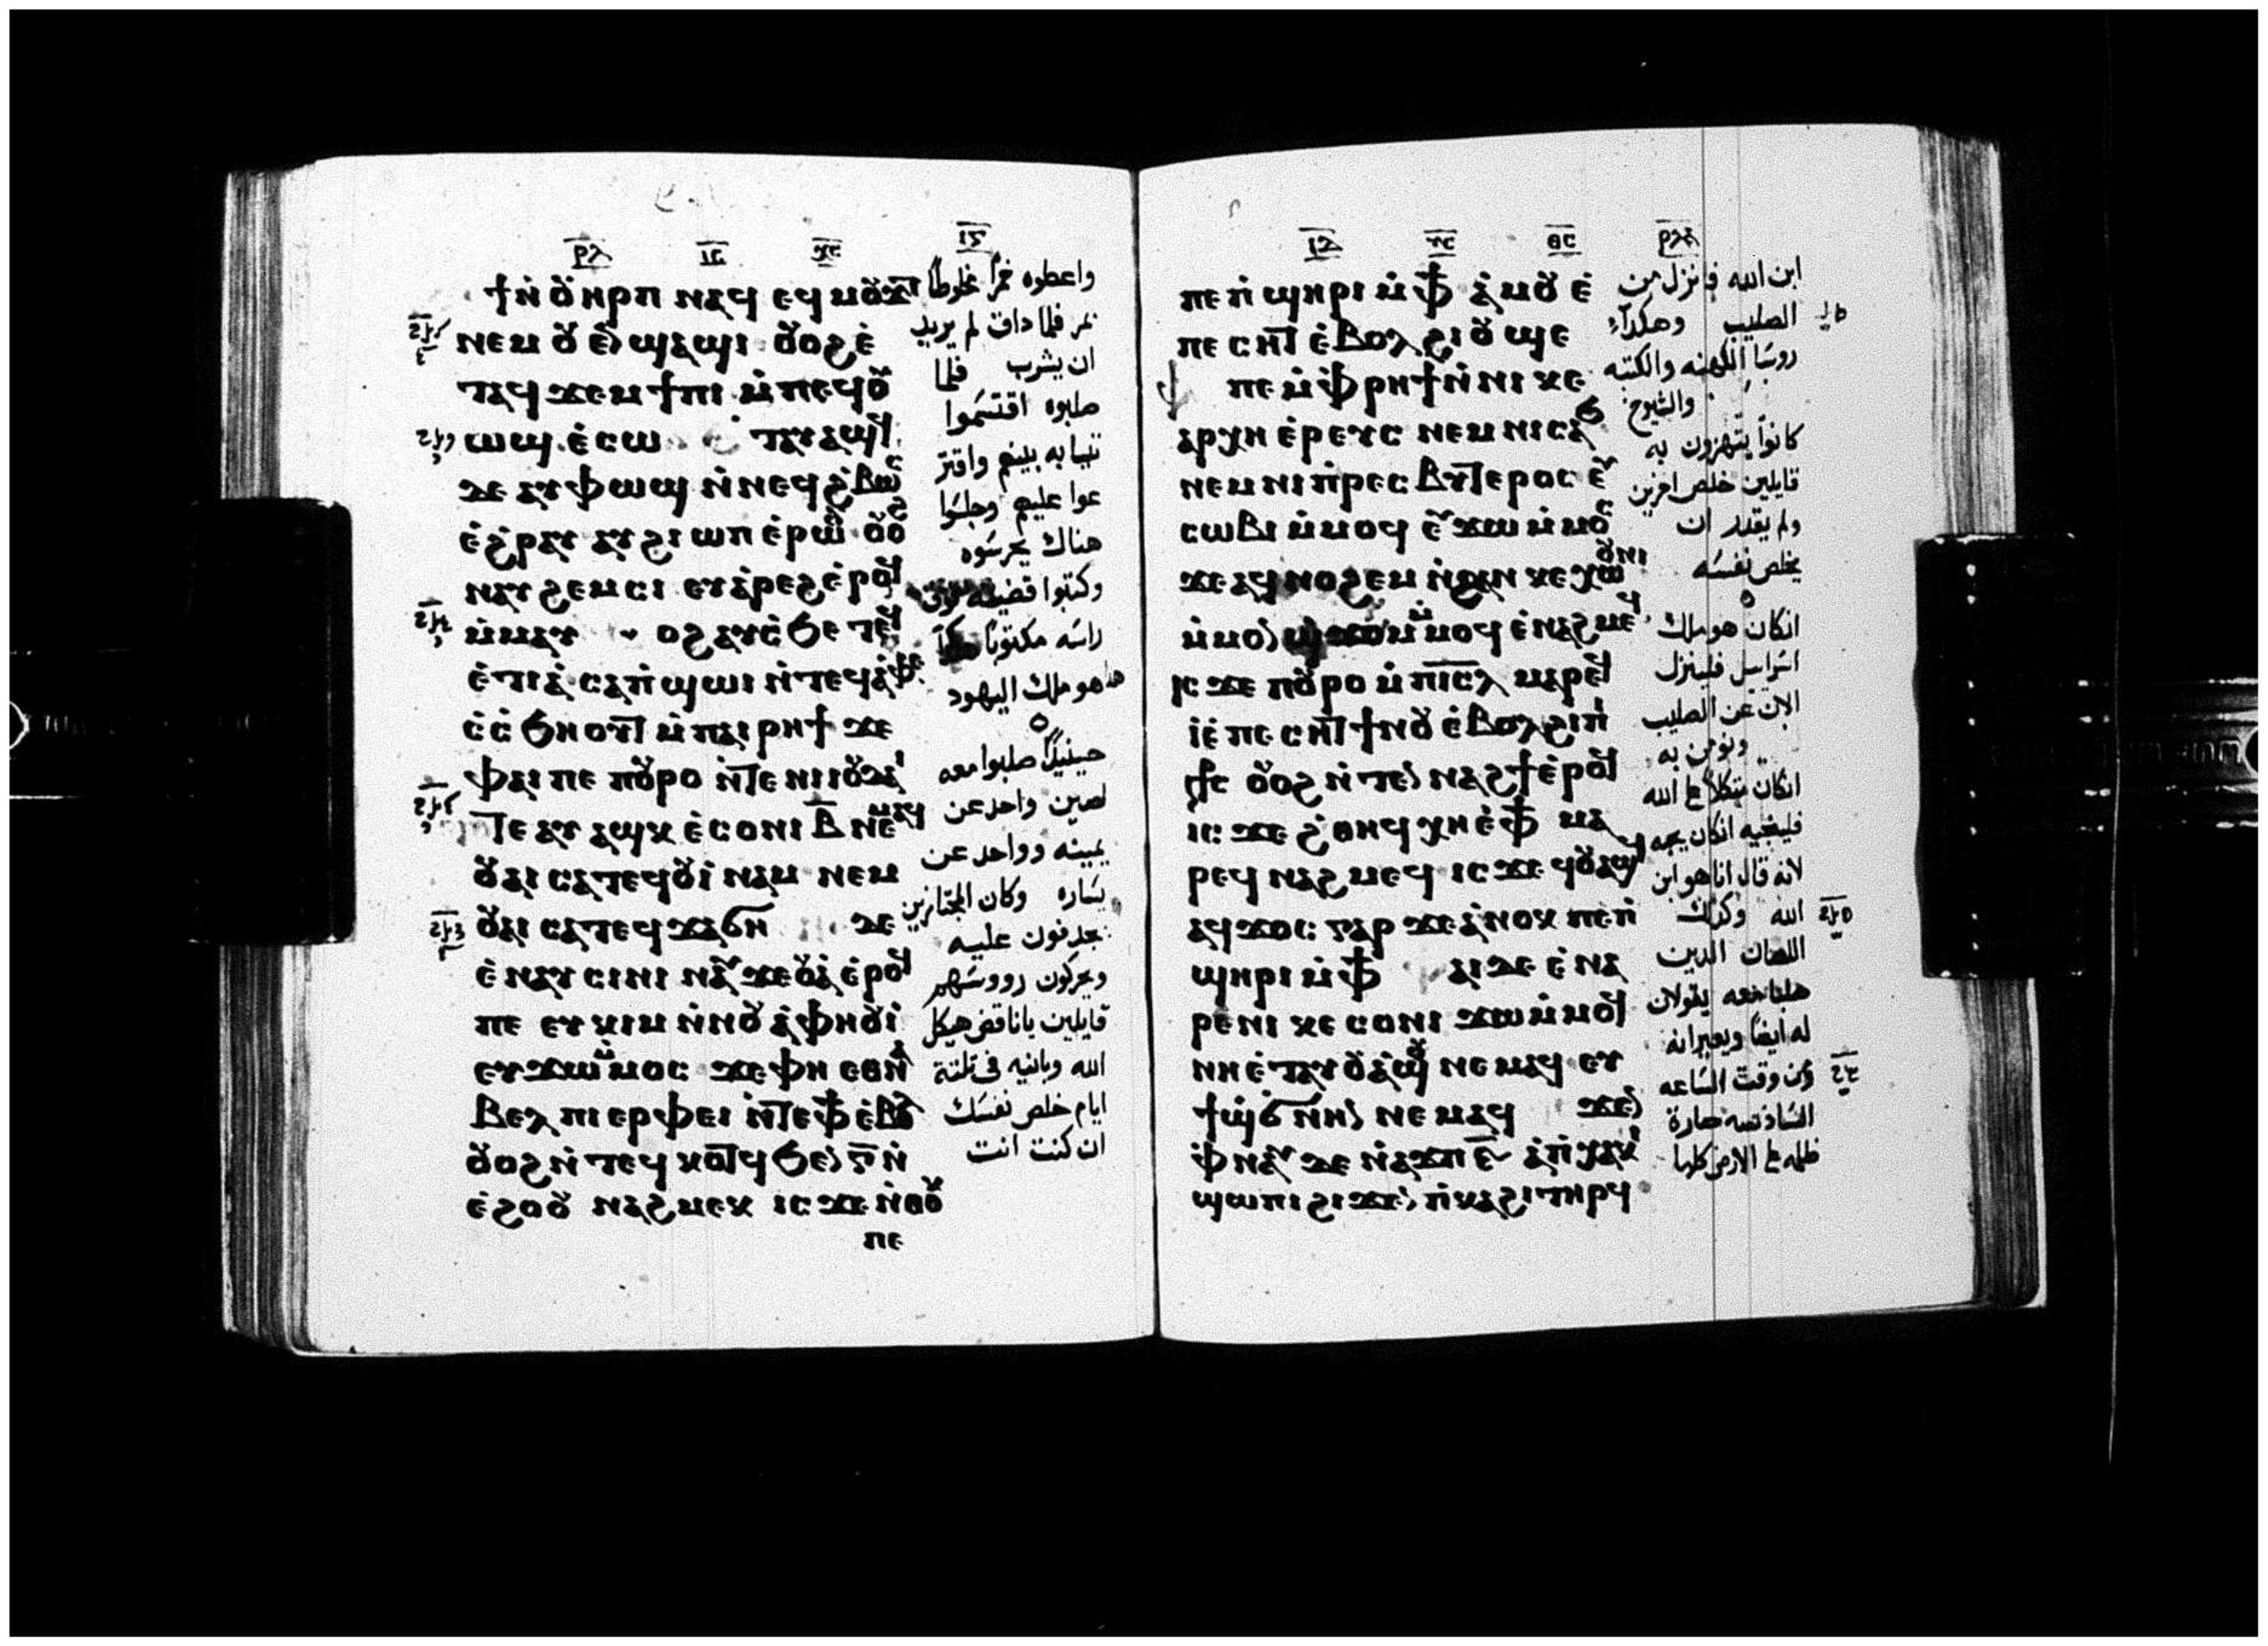 ϯⲛ̀ⲟ̆ⲏⲣⲡ ⲛⲁϥ ⲉϥⲙⲟ̆ϫⲧ
ⲛⲉⲙ ⲟ̆
ⲧⲁϥ ϫⲉⲙϯⲡⲓ ⲙ̀ⲡⲉϥⲟ̆
ⲱϣ ⲉ̀ⲥⲱ
ⲇⲉ ⲁⲩⲫⲱϣ ⲛ̀ⲛⲉϥϩ̀ⲃⲱⲥ
ⲉ̀ϩ̀ⲣⲁⲩ ⲁⲩϩⲓ ⲱⲡ ⲉ̀ⲣⲱⲟ̆ ⲟ̆ⲟϩ
ⲛⲁⲩϩⲉⲙⲥⲓ ⲉⲩⲁ̀ⲣⲉϩ ⲉ̀ⲣⲟϥ
ⲙ̀ⲙⲁⲩ
ⲉ̀ⲧⲓⲁ̀ ⲥⲁⲡ̀ϣⲱⲓ ⲛ̀ⲧⲉϥⲁ̀ⲫⲉ
ⲉ̀ⲥ̀ⲥϧⲏⲟⲩⲧ ⲙ̀ⲡⲁⲓⲣⲏϯ ϫⲉ
ⲫⲁⲓ ⲡⲉ ⲡⲟ̆ⲣⲟ ⲛ̀ⲧⲉ ⲛⲓⲓⲟ̆ⲇⲁⲓ
ⲧⲉ ⲁⲩ ⲁϣⲕ ⲉ̀ⲥⲟⲛⲓ ⲃ̅ ⲛⲉⲙⲁϥ
ⲟ̆ⲁⲓ ⲥⲁⲧⲉϥⲟ̆ⲓ̀ⲛⲁⲙ ⲛⲉⲙ
ⲟ̆ⲁⲓ ⲥⲁⲧⲉϥϫⲁϭⲏ ⲇⲉ
ⲉ̀ⲛⲁⲩⲥⲓⲛⲓ ⲛⲁⲩ ϫⲉⲟ̆ⲁ̀ ⲉ̀ⲣⲟϥ
ⲡⲉ ⲉⲩⲕⲓⲙ ⲛ̀ⲛⲟ̆ⲁ̀ⲫⲏⲟ̆ⲓ̀
ⲉⲩϫⲱⲙ̀ⲙⲟⲥ ϫⲉⲫⲏ ⲉⲑⲛⲁ
ⲃⲉⲗ ⲡⲓⲉⲣⲫⲉⲓ ⲛ̀ⲧⲉⲫϯ ⲉ̀ⲃⲟⲗ
ⲟ̆ⲟϩ ⲛ̀ⲧⲉϥⲕⲟⲧϥ ϧⲉⲛ ⲅ̅ⲛ̀
ⲉ̀ϩⲟⲟ̆ ⲛⲁϩⲙⲉⲕ ⲓⲥϫⲉ ⲛ̀ⲑⲟ̆
ⲡⲉ
واعطوه خمرًا مخلوطًا
بمر فلما داق لم يريد
ان يشرب فلما
صلبوه اقتسموا
ثيابه بينهم واقتر
عوا عليهم وجلسوا
هناك يحرسوه
وكتبوا قضيته فوق
راسه مكتوبًا هكذا
هدا هو ملك اليهود
حينيدًا صلبوا معه
لصين واحد عن
يمينه وواحد عن
يساره وكان المجتازين
يجدفون عليه
ويحركون رووسهم
قايلين يا ناقض هيكل
الله وبانيه في تلتة
ايام خلص نفسك
ان كنت انت
ⲡⲉ ⲡ̀ϣⲏⲣⲓ ⲙ̀ⲫϯ ⲁ̀ⲙⲟ̆ ⲉ̀
ⲡⲉⲥⲏⲧ ⲉ̀ⲃⲟⲗ ϩⲓⲟ̆ϣⲉ
ⲡⲉ ⲙ̀ⲫⲣⲏϯ ⲛ̀ⲛⲓ ⲕⲉ
ⲁⲣⲭⲏ ⲉ̀ⲣⲉⲩⲥ ⲛⲉⲙ ⲛⲓⲥⲁϧ
ⲛⲉⲙ ⲛⲓⲡ̀ⲣⲉⲥⲃⲩⲧⲉⲣⲟⲥ ⲉⲩ
ⲥⲱⲃⲓ ⲙ̀ⲙⲟϥ ⲉⲩϫⲱ ⲙ̀ⲙⲟⲥ
ϫⲉⲁϥⲛⲟϩⲉⲙ ⲛ̀ϩⲁⲛ ⲕⲉⲭⲱⲟ̆ⲛⲓ
ⲙ̀ⲙⲟⲛ ϣϫⲟⲙ ⲙ̀ⲙⲟϥ ⲉ̀ⲛⲁϩⲙⲉϥ
ⲓⲥϫⲉ ⲡⲟ̆ⲣⲟ ⲙ̀ⲡⲓⲥⲗ ⲙⲁⲣⲉϥ
ⲓ̀ ⲉ̀ⲡⲉⲥⲏⲧ ϯⲛⲟ̆ ⲉ̀ⲃⲟⲗ ϩⲓⲡⲓ
ⲟ̆ⲟϩ ⲛ̀ⲧⲉⲛ ⲛⲁϩϯ ⲉ̀ⲣⲟϥ
ⲓⲥϫⲉ ϩ̀ⲑⲏϥ ⲭⲏ ⲉ̀ⲫϯ ⲙⲁ
ⲣⲉϥ ⲛⲁϩⲙⲉϥ ⲓⲥϫⲉ ϥⲟ̆ⲁϣϥ
ⲁϥϫⲟⲥ ⲅⲁⲣ ϫⲉⲁ̀ⲛⲟⲕ ⲡⲉⲡ̀
ϣⲏⲣⲓ ⲙ̀ⲫϯ ⲁⲓⲇⲉ ⲉ̀ⲛⲁ
ⲣⲉⲛⲓ ⲕⲉ ⲥⲟⲛⲓ ϫⲱ ⲙ̀ⲙⲟϥ
ⲛⲏ ⲉ̀ⲧⲁⲩⲟ̆ⲁ̀ϣⲟ̆ ⲛⲉⲙⲁϥ ⲉⲩ
ϯϣ̀ϭⲛⲏⲛ ⲛⲉⲙⲁϥ ϫⲉⲛ
ⲫⲛⲁⲩ ⲇⲉ ⲛ̀ⲁϫⲡ ⲋ̅ ⲁ̀ⲡ̀ⲭⲁⲕⲓ
ϣⲱⲡⲓ ϩⲓϫⲉⲛ ⲡ̀ⲕⲁϩⲓ ⲧⲏⲣϥ
ابن الله فانزل من
الصليب وهكدا
روسا الكهنه والكتبه
والشيوخ
كانوا يتهزون به
قايلين خلص اخرين
ولم يقدر ان
يخلص نفسه
انكان هو ملك
اسراييل فلينزل
الان عن الصليب
ونومن به
انكان متكلًا ع الله
فلينجيه انكان يحبه
لانه قال انا هو ابن
الله وكدلك
اللصان الدين
صلبا معه يقولان
له ايضًا ويعيرانه
ومن وقت الساعه
السادسه صارة
ظلمه ع الارض كلها